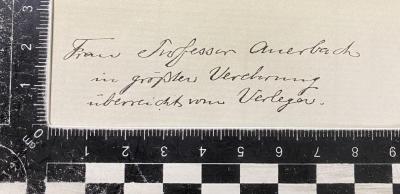 Frau Professor Auerbach
in größter Verehrung
überreicht vom Verleger.
3
2
1
0
cm
1
2
3
4
5
6
7
8
9